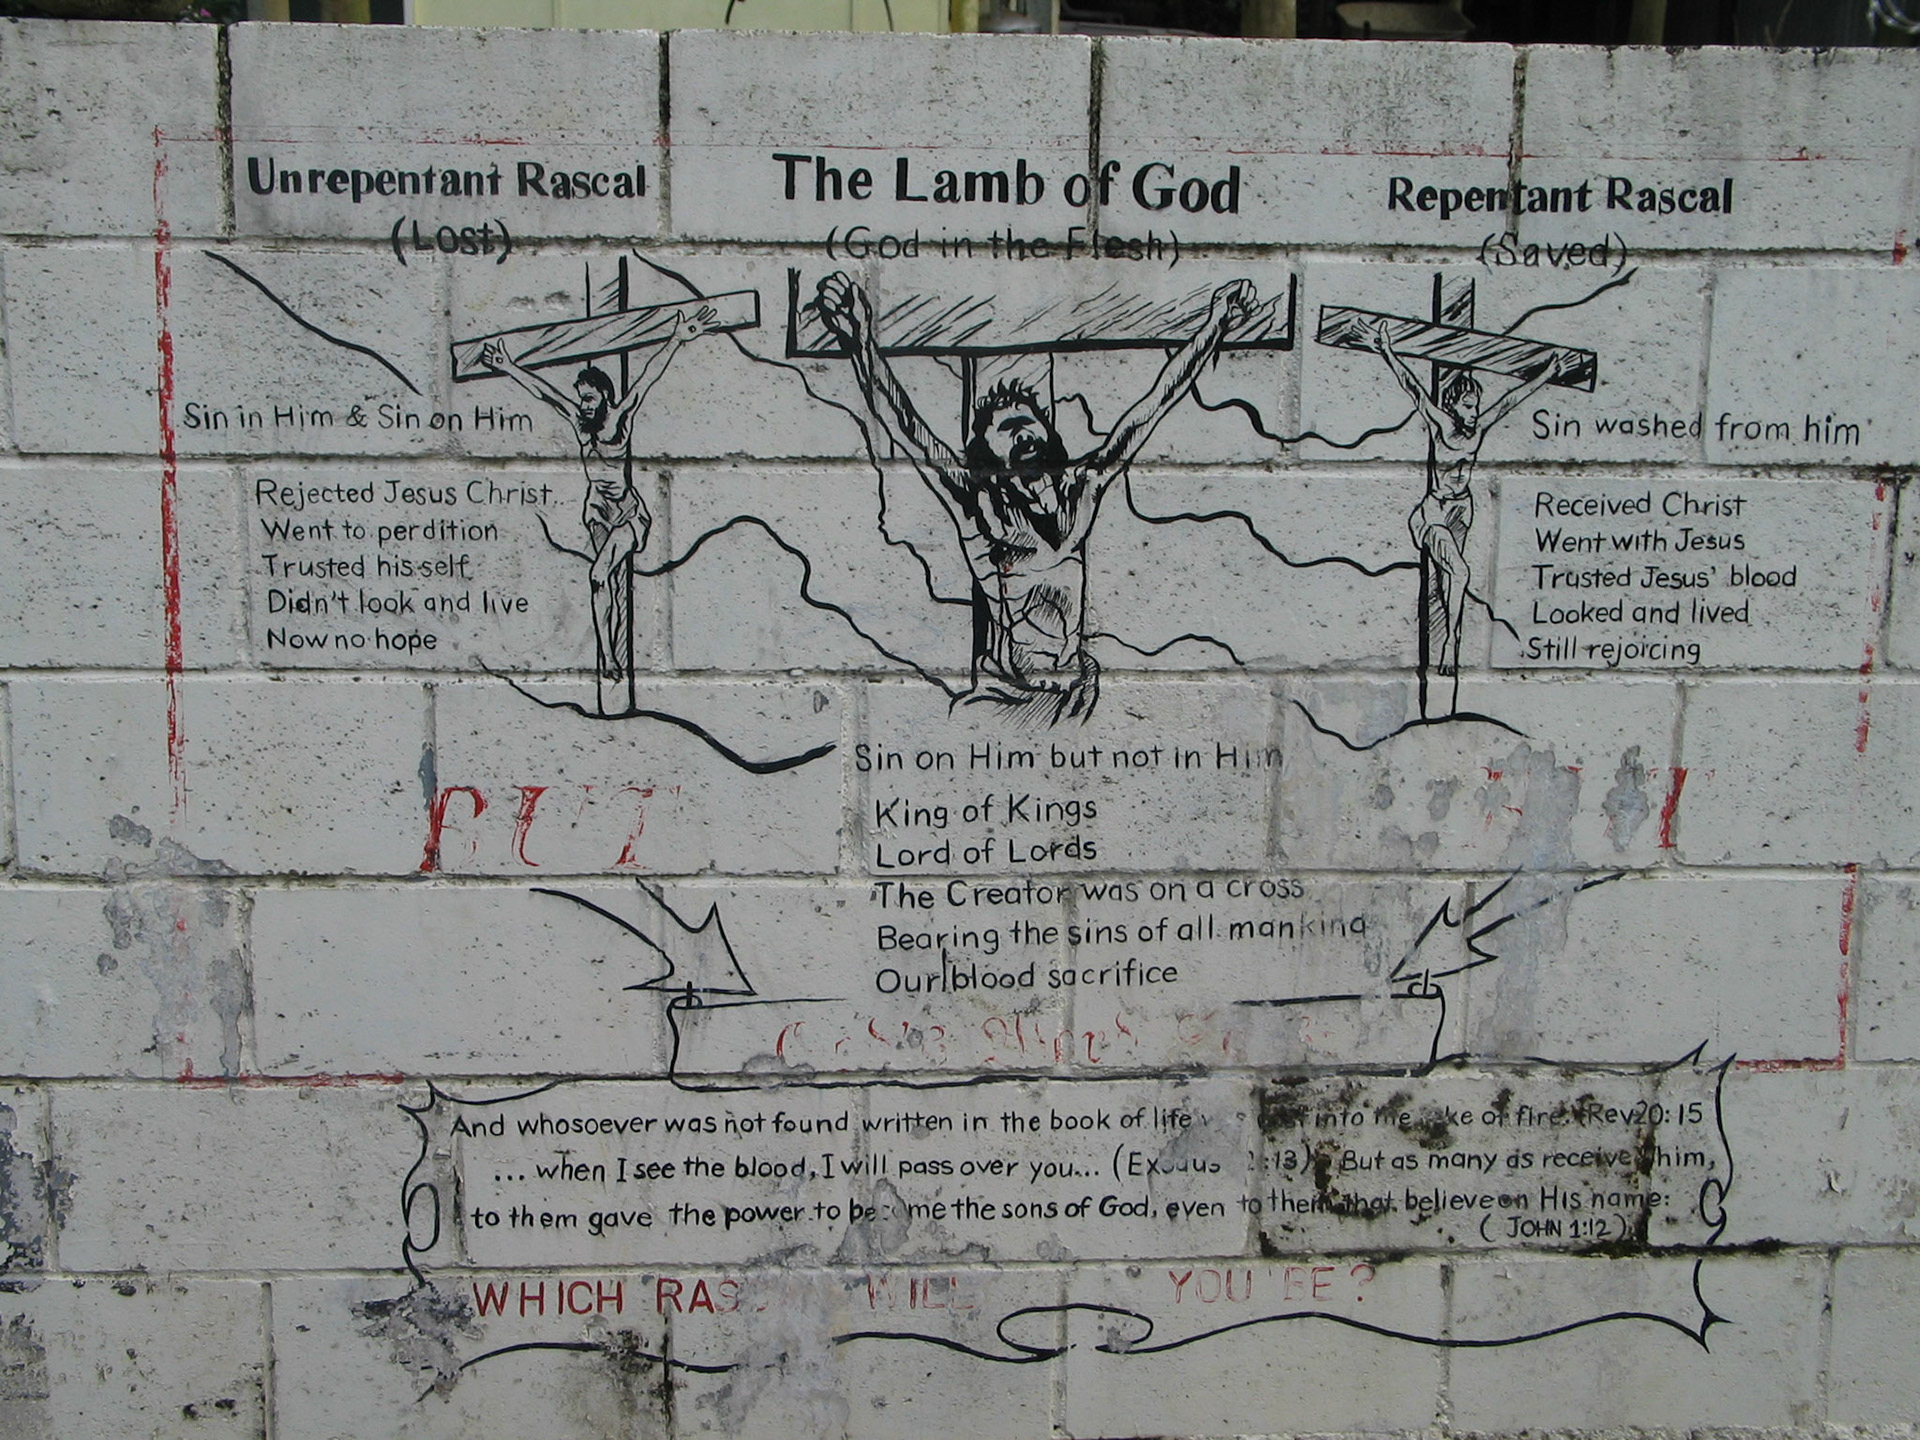 Unrepentant Rascal
(Lost)
The Lamb of God
(God in the Flesh)
Repentant Rascal
(Saved)
Sin in Him & Sin on Him
Rejected Jesus Christ
Went to perdition
Trusted his self
Didn't look and live
Now no hope
Sin washed from him
Received Christ
Went with Jesus
Trusted Jesus' blood
Looked and lived
Still rejoicing
Sin on Him but not in Him
King of Kings
Lord of Lords
The Creator was on a cross
Bearing the sins of all mankind
Our blood sacrifice
BUT
And whosoever was not found written in the book of life into the of fire. (Rev20:15
... when I see the blood, I will pass over you... (Exodus :13) But as many as receive him,
to them gave the power to become the sons of God, even to them that believe on His name:
(JOHN 1:12)
WHICH WILL YOU BE?